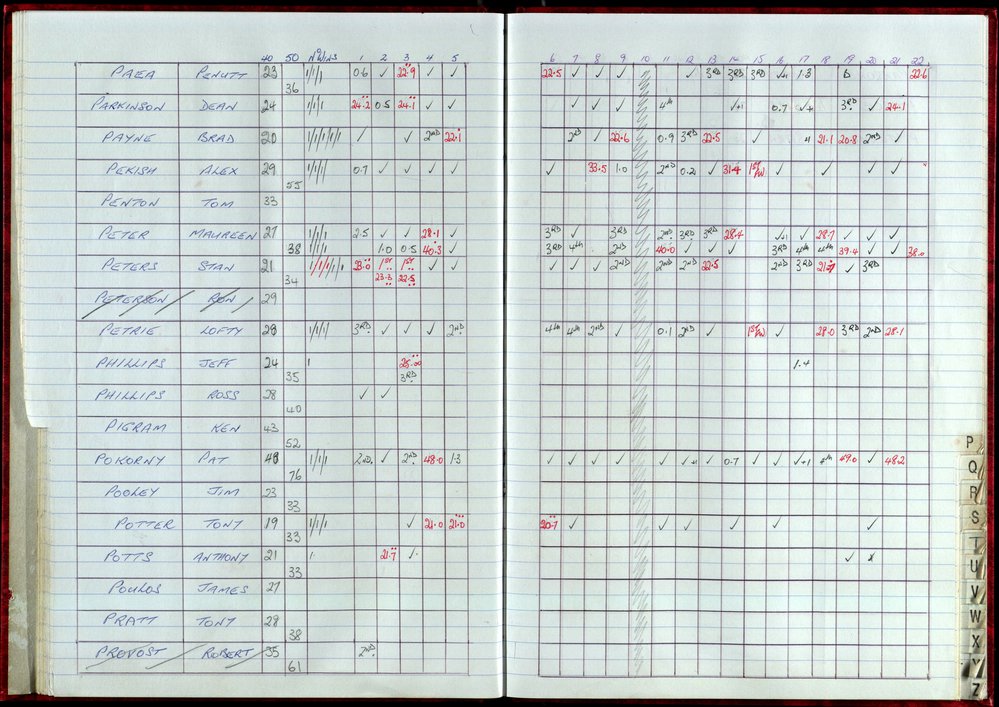 40 50 Nº WINS 1 2 3 4 5 6 7 8 9 10 11 12 13 14 15 16 17 18 19 20 21 22
PAEA PENUTT 23 36 0.6 ✓ 22.9 ✓ ✓ 22.5 ✓ ✓ ✓ ✓ 3RD 3RD 3RD 1.3 22.6
PARKINSON DEAN 24 24.2 0.5 24.1 ✓ ✓ ✓ ✓ ✓ 4th 0.7 3RD ✓ 24.1
PAYNE BRAD 20 ✓ ✓ 2ND 22.1 2ND ✓ 22.6 0.9 3RD 22.5 ✓ 21.1 20.8 2ND ✓
PEKISH ALEX 29 55 0.7 ✓ ✓ ✓ ✓ ✓ 33.5 1.0 2ND 0.2 ✓ 31.4 1ST ✓ ✓ ✓ ✓
PENTON TOM 33
PETER MAUREEN 27 2.5 ✓ ✓ 28.1 ✓ 3RD ✓ 3RD 2ND 3RD 3RD 28.4 28.7 ✓ ✓ ✓
38 1.0 0.5 40.3 ✓ 3RD 4th 2ND 40.0 ✓ ✓ ✓ 3RD 4th 4th 39.4 ✓ ✓ 38.0
PETERS STAN 21 34 23.0 1ST 23.3 1ST 22.5 ✓ ✓ ✓ ✓ ✓ 2ND 2ND 2ND 22.5 2ND 3RD 21.7 ✓ 3RD
PETERSON RON 29
PETRIE LOFTY 28 3RD ✓ ✓ ✓ 2ND 4th 4th 2ND ✓ 0.1 2ND ✓ 1ST ✓ 28.0 3RD 2ND 28.1
PHILLIPS JEFF 24 35 25.0 3RD 1.4
PHILLIPS ROSS 28 40 ✓ ✓
PIGRAM KEN 43 52
POKORNY PAT 48 76 2ND ✓ 2ND 48.0 1.3 ✓ ✓ ✓ ✓ ✓ ✓ 0.7 ✓ ✓ 4th 49.0 ✓ 48.2
POOLEY JIM 23 33
POTTER TONY 19 33 ✓ 21.0 21.0 20.7 ✓ ✓ ✓ ✓ ✓ ✓
POTTS ANTHONY 21 33 21.7 ✓ ✓ x
POULOS JAMES 27
PRATT TONY 28 38
PROVOST ROBERT 35 61 2ND
P
Q
R
S
T
U
V
W
X
Y
Z